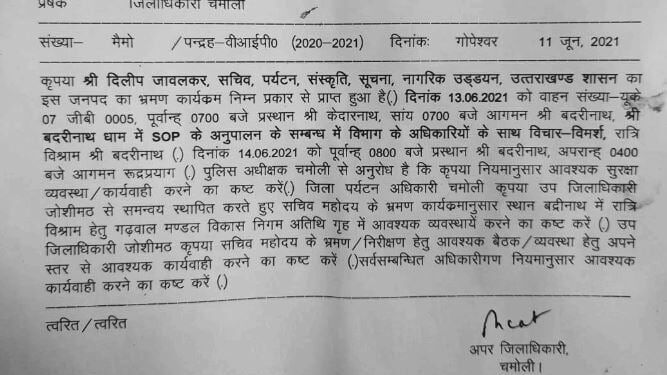 प्रेषक जिलाधिकारी चमोली
संख्या- मैमो /पन्द्रह-वीआईपी0 (2020-2021) दिनांकः गोपेश्वर 11 जून, 2021
कृपया श्री दिलीप जावलकर, सचिव, पर्यटन, संस्कृति, सूचना, नागरिक उड्डयन, उत्तराखण्ड शासन का
इस जनपद का भ्रमण कार्यक्रम निम्न प्रकार से प्राप्त हुआ है(.) दिनांक 13.06.2021 को वाहन संख्या-यूके
07 जीबी 0005, पूर्वान्ह् 0700 बजे प्रस्थान श्री केदारनाथ, सांय 0700 बजे आगमन श्री बदरीनाथ, श्री
बदरीनाथ धाम में SOP के अनुपालन के सम्बन्ध में विभाग के अधिकारियों के साथ विचार-विमर्श, रात्रि
विश्राम श्री बदरीनाथ (.) दिनांक 14.06.2021 को पूर्वान्ह् 0800 बजे प्रस्थान श्री बदरीनाथ, अपरान्ह् 0400
बजे आगमन रूद्रप्रयाग (.) पुलिस अधीक्षक चमोली से अनुरोध है कि कृपया नियमानुसार आवश्यक सुरक्षा
व्यवस्था/कार्यवाही करने का कष्ट करें(.) जिला पर्यटन अधिकारी चमोली कृपया उप जिलाधिकारी
जोशीमठ से समन्वय स्थापित करते हुए सचिव महोदय के भ्रमण कार्यक्रमानुसार स्थान बद्रीनाथ में रात्रि
विश्राम हेतु गढ़वाल मण्डल विकास निगम अतिथि गृह में आवश्यक व्यवस्थायें करने का कष्ट करें (.) उप
जिलाधिकारी जोशीमठ कृपया सचिव महोदय के भ्रमण/निरीक्षण हेतु आवश्यक बैठक/व्यवस्था हेतु अपने
स्तर से आवश्यक कार्यवाही करने का कष्ट करें (.)सर्वसम्बन्धित अधिकारीगण नियमानुसार आवश्यक
कार्यवाही करने का कष्ट करें (.)
त्वरित/त्वरित
अपर जिलाधिकारी,
चमोली।